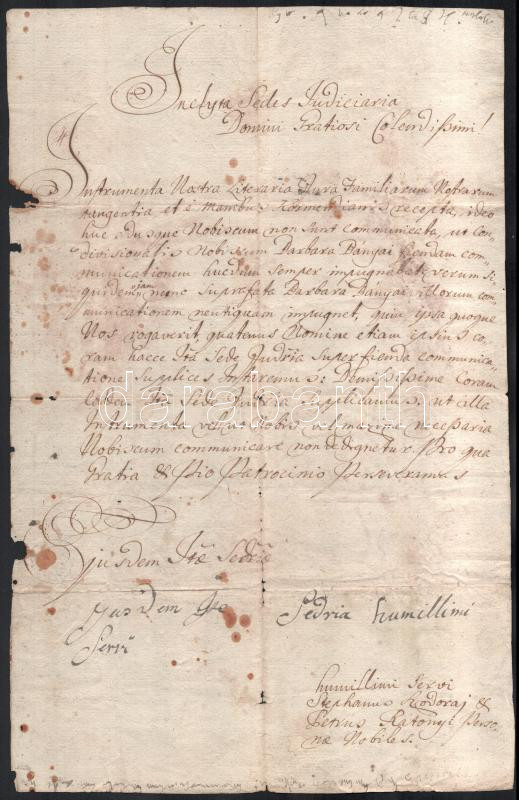 Inclyta Sedes Judiciaria
Domini Gratiosi Colendissimi!
Instrumenta Nostra Literaria Jura Familiarum Notrarum
tangentia et è manibus Körmendianis recepta, ideo
huc adusque Nobiscum non sunt communicata, ut con-
divisionalis Nobiscum Barbara Banyai fiendam com-
municationem hucdum semper impugnabat, verum si-
quidem jam nunc suprafata Barbara Banyai illorum com-
municationem neutiquam impugnet, quin ipsa quoque
Nos rogaverit, quatenus Nomine etiam ipsius co-
ram hacce Itâ Sede Judria super fienda communica-
tione supplices Instaremus: Demississime Coram
eadem Itâ Sede Judria supplicamus: ut illa
Instrumenta velut Nobis vel maxime necessaria
Nobiscum communicare non dedignetur. Pro qua
Gratia & Pio Patrocinio Perseveramus
Ejusdem Itæ Sedriæ
Ejusdem Itæ Sedria humillimi
Servi
humillimi servi
Stephanus &
Petrus Katonyi Perso-
næ Nobiles.
darabanth